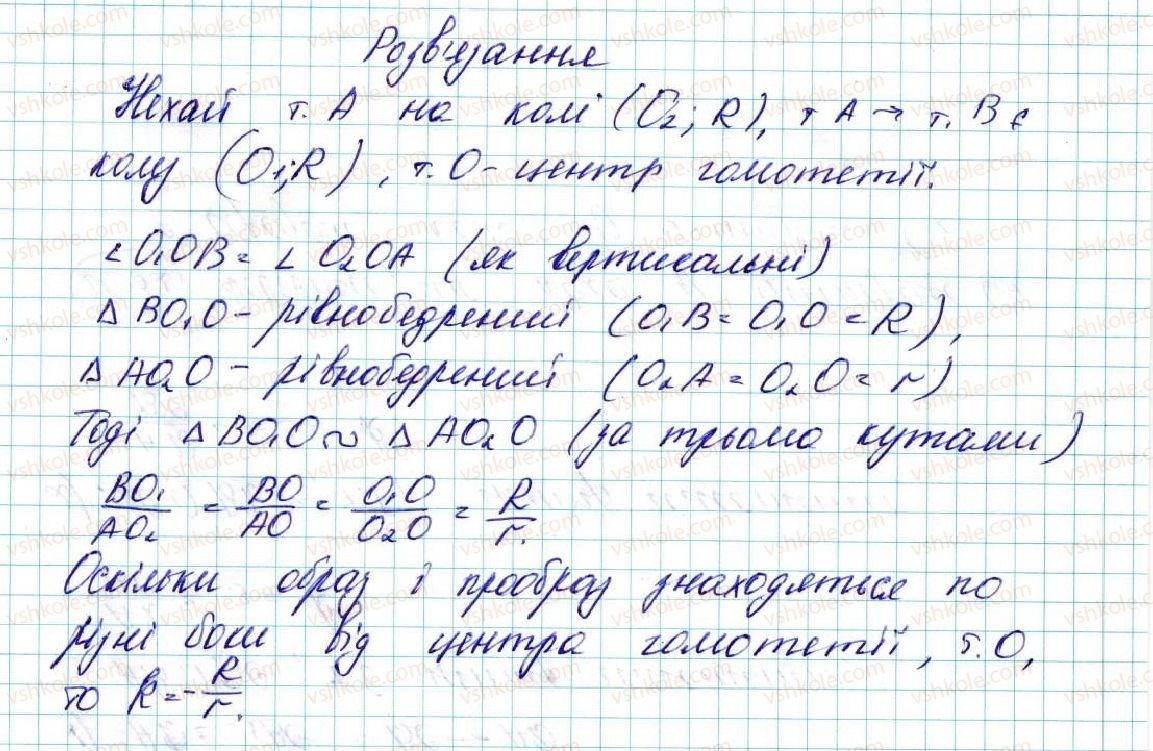 Розв'язання
Нехай т. А на колі (O₂; R), т А → т. В є
колу (O₁; R), т. О - центр гомотетії.
∠O₁OB = ∠O₂OA (як вертикальні)
△ BO₁O - рівнобедрений (O₁B = O₁O = R),
△ AO₂O - рівнобедрений (O₂A = O₂O = r)
Тоді △ BO₁O ~ △ AO₂O (за трьома кутами)
BO₁/AO₂ = BO/AO = O₁O/O₂O = R/r.
Оскільки образ і прообраз знаходяться по
різні боки від центра гомотетії, т. О,
то k = -R/r.
vshkole.com